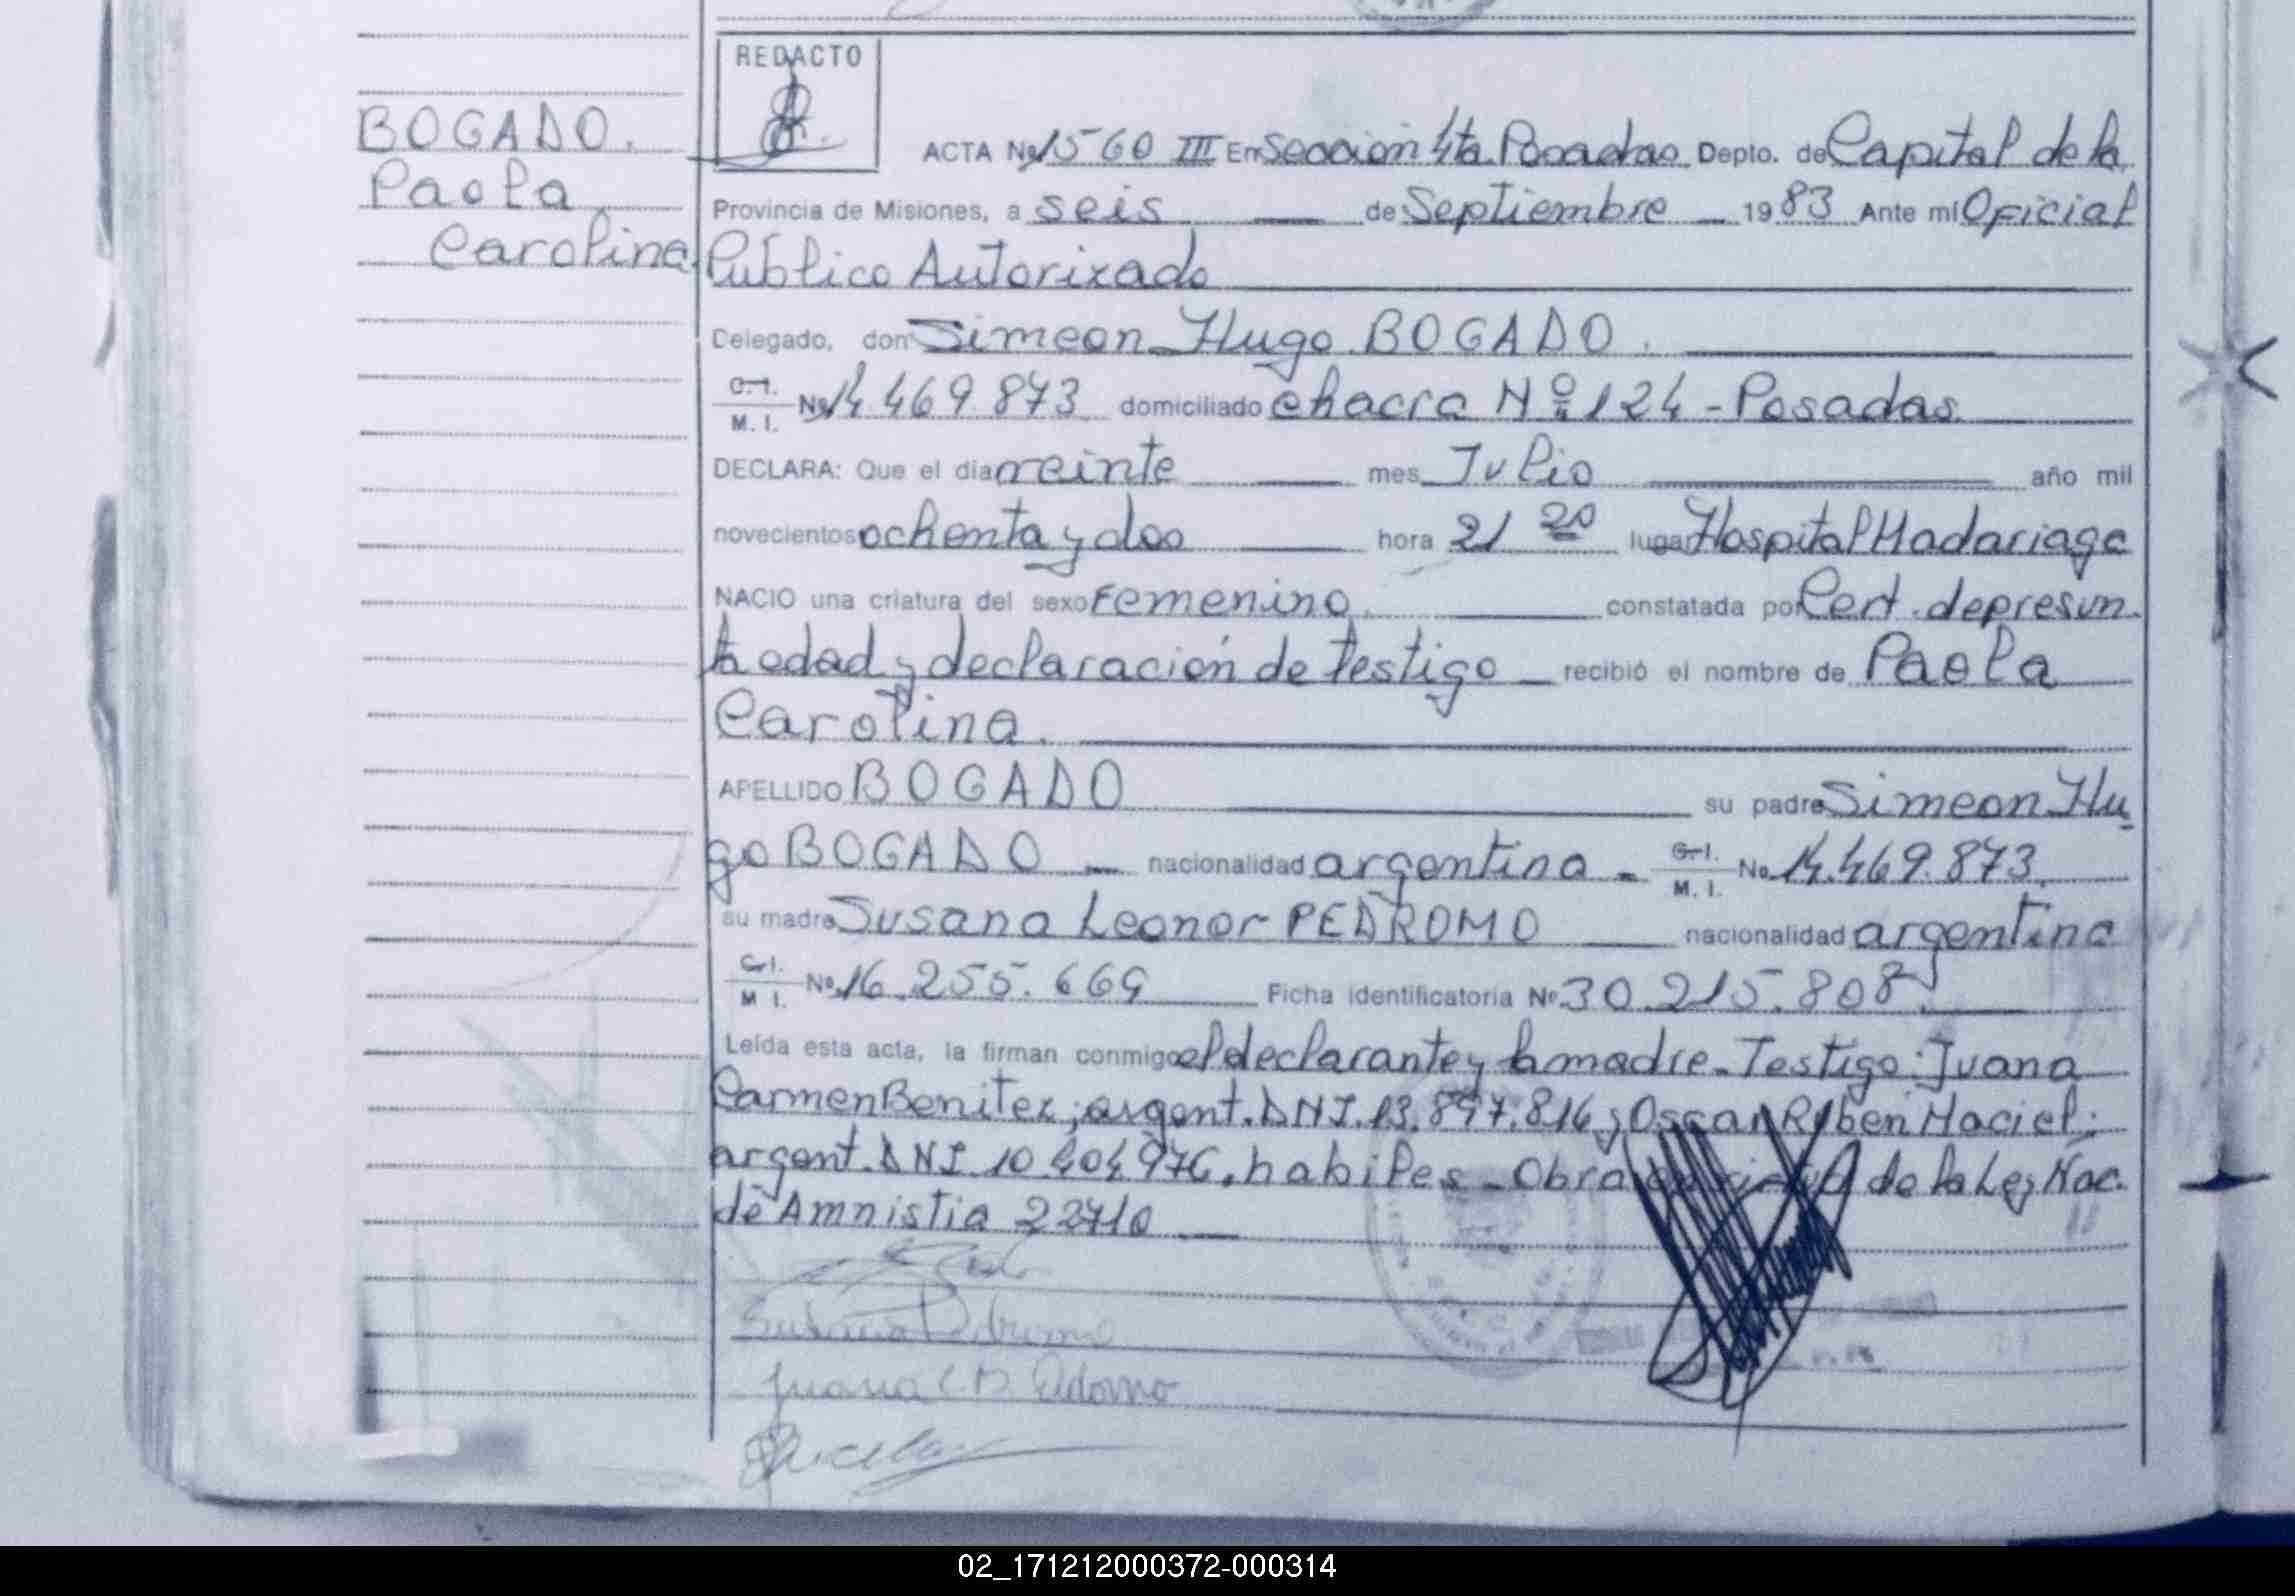 REDACTO
BOGADO.
Paola
Carolina
ACTA Nº 1560 III En Sección 4ta. Posadas Depto. de Capital de la
Provincia de Misiones, a seis de Septiembre 1983 Ante mí Oficial
Público Autorizado
Delegado, don Simeon Hugo BOGADO.
C.I.
M. I. Nº 14.469.873 domiciliado chacra Nº 124 - Posadas.
DECLARA: Que el día veinte mes Julio año mil
novecientos ochenta y dos hora 21 20 lugar Hospital Madariaga
NACIO una criatura del sexo Femenino. constatada por Cert. de presun.
ta edad y declaración de testigo recibió el nombre de Paola
Carolina.
APELLIDO BOGADO su padre Simeon Hu
go BOGADO nacionalidad argentina C.I.
M. I. Nº 14.469.873.
su madre Susana Leonor PEDROMO nacionalidad argentina
C.I.
M I. Nº 16.255.669 Ficha identificatoria Nº 30.215.808.
Leída esta acta, la firman conmigo el declarante y la madre. Testigo: Juana
Carmen Benitez; argent. DNI. 13.897.816 y Oscar Ruben Maciel;
argent. DNI 10.404.976, habiles. Obra de la Ley Nac.
de Amnistia 22710
Susana Pedromo
Juana C.B. Adorno
02_171212000372-000314